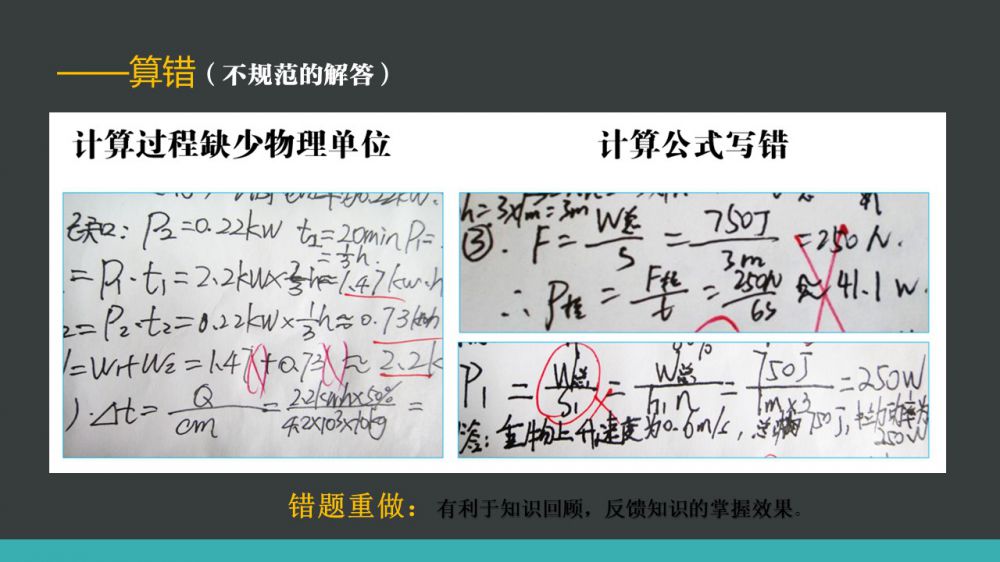 ——算错（不规范的解答）
计算过程缺少物理单位
P₂=0.22kW t₂=20min P₁=
=⅓h.
=P₁·t₁=2.2kW×⅔h≈1.47kW·h
₂=P₂·t₂=0.22kW×⅓h≈0.73kWh
1=W₁+W₂=1.47+0.73≈2.2k
).Δt=Q/cm=2.2kWh×50%/4.2×103×70kg=
计算公式写错
h=3×1m=3m
③. F=W总/S=750J/3m=250N.
∴P拉=F拉/t=250N/6s≈41.1w.
P₁=W总/S₁=W总/h₁n=750J/1m×3=250W
答:重物上升速度为0.6m/s,总功750J,拉力功率为250W
错题重做：有利于知识回顾，反馈知识的掌握效果。